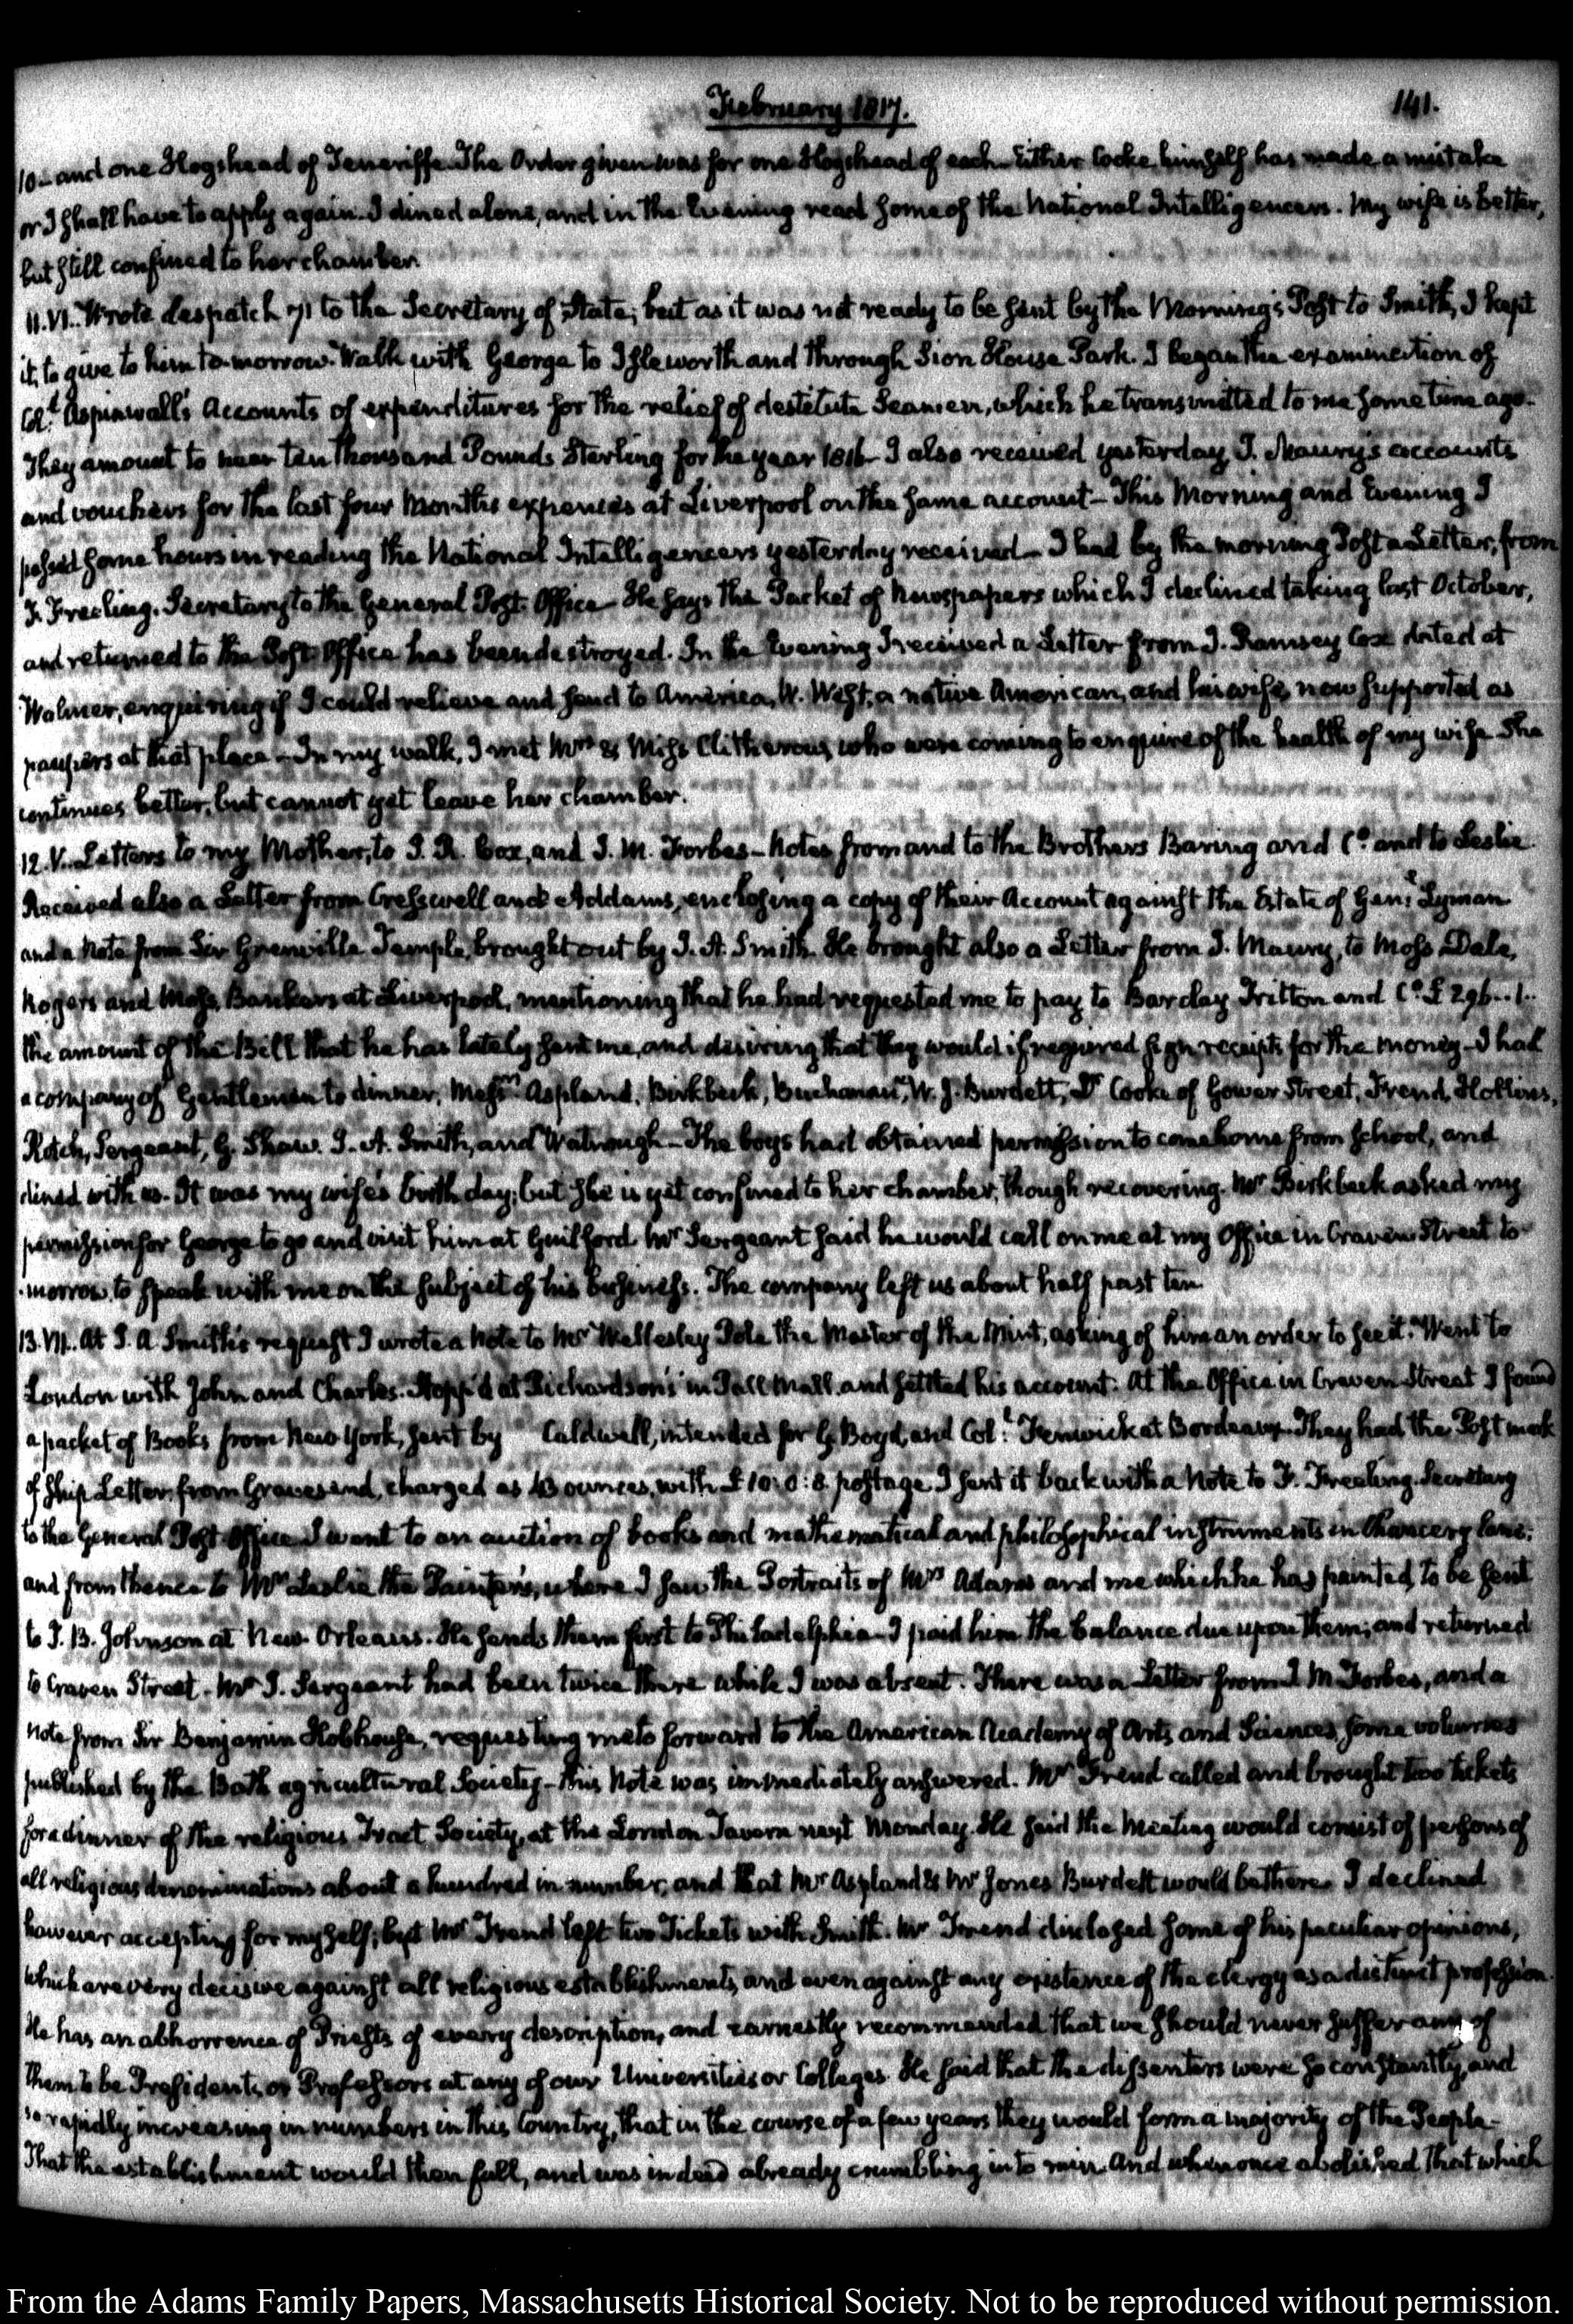 February 1817.
141.
10_ and one Hogshead of Teneriffe_The Order given was for one Hogshead of each_Either Cocke himself has made a mistake
or I shall have to apply again. I dined alone, and in the Evening read some of the National Intelligencers. My wife is better,
but still confined to her chamber.
11. VI. Wrote despatch 71 to the Secretary of State; but as it was not ready to be sent by the Morning's Post to Smith, I kept
it, to give to him to-morrow. Walk with George to Isleworth and through Sion House Park. I began the examination of
Col.l Aspinwall's Accounts of expenditures for the relief of destitute Seamen, which he transmitted to me some time ago.
They amount to near ten thousand Pounds Sterling for the year 1816_ I also received yesterday J. Maury's accounts
and vouchers for the last four Months expences at Liverpool on the same account_ This Morning and Evening I
passed some hours in reading the National Intelligencers yesterday received_ I had by the morning Post a Letter, from
F. Freeling. Secretary to the General Post-Office_ He says the Packet of Newspapers which I declined taking last October,
and returned to the Post-Office has been destroyed. In the Evening I received a Letter from J. Ramsey Cox dated at
Walmer, enquiring if I could relieve and send to America, W. West, a native American, and his wife, now supported as
paupers at that place_In my walk, I met Mrs & Miss Clitherow, who were coming to enquire of the health of my wife She
continues better, but cannot yet leave her chamber.
12. V. Letters to my Mother, to J. R. Cox, and J. M. Forbes_ Notes from and to the Brothers Baring and Co. and to Leslie.
Received also a Letter from Cresswell and Addams, enclosing a copy of their Account against the Estate of Gen.l Lyman
and a Note from Sir Grenville Temple, brought out by J. A. Smith. He brought also a Letter from J. Maury, to Moss, Dale,
Rogers and Moss, Bankers at Liverpool, mentioning that he had requested me to pay to Barclay Tritton and Co. £296..1..
the amount of the Bill that he has lately sent me, and desiring that they would if required sign receipts for the money_I had
a company of Gentlemen to dinner, Messrs. Aspland, Birkbeck, Buchanan, W. J. Burdett, Dr Cooke of Gower Street, Frend, Hollins,
Rotch, Sergeant, G. Shaw. J. A. Smith, and Watnough_The boys had obtained permission to come home from school, and
dined with us. It was my wife's birth day; but she is yet confined to her chamber, though recovering. Mr Birkbeck asked my
permission for George to go and visit him at Guilford. Mr Sergeant said he would call on me at my Office in Craven Street to-
morrow, to speak with me on the subject of his business. The company left us about half past ten
13. VII. At J. A Smith's request I wrote a Note to Mr Wellesley Pole the Master of the Mint, asking of him an order to see it. Went to
London with John and Charles. Stopp'd at Richardson's in Pall Mall. and settled his account. At the Office in Craven Street I found
a packet of Books from New York, sent by Caldwell, intended for G. Boyd, and Col.l Fenwick at Bordeaux. They had the Post mark
of Ship Letter, from Gravesend, charged as 43 ounces, with £10:0:8. postage I sent it back with a Note to F. Freeling. Secretary
to the General Post-Office I went to an auction of books and mathematical and philosophical instruments in Chancery lane;
and from thence to Mr Leslie the Painter's, where I saw the Portraits of Mrs Adams and me which he has painted, to be sent
to T. B. Johnson at New-Orleans. He sends them first to Philadelphia_I paid him the balance due upon them; and returned
to Craven Street. Mr J. Sergeant had been twice there while I was absent. There was a Letter from J. M. Forbes, and a
Note from Sir Benjamin Hobhouse, requesting me to forward to the American Academy of Arts and Sciences, some volumes
published by the Bath agricultural Society_this Note was immediately answered. Mr Frend called and brought two tickets
for a dinner of the religious Tract Society, at the London Tavern next Monday. He said the Meeting would consist of persons of
all religious denominations about a hundred in number, and that Mr Aspland & Mr Jones Burdett would be there. I declined
however accepting for myself; but Mr Frend left two Tickets with Smith. Mr Frend disclosed some of his peculiar opinions,
which are very decisive against all religious establishments, and even against any existence of the clergy as a distinct profession.
He has an abhorrence of Priests of every description, and earnestly recommended that we should never suffer any of
them to be Presidents or Professors at any of our Universities or Colleges. He said that the dissenters were so constantly, and
so rapidly increasing in numbers in this Country, that in the course of a few years they would form a majority of the People_
That the establishment would then fall, and was indeed already crumbling into ruin. And when once abolished that which
From the Adams Family Papers, Massachusetts Historical Society. Not to be reproduced without permission.